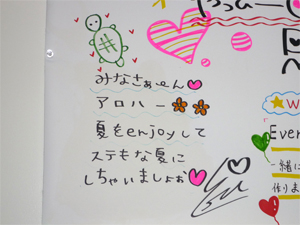 みなさぁーん♥
アロハー
夏をenjoyして
ステもな夏に
しちゃいましょぉ♥
★W
Ever
一緒に
作りま